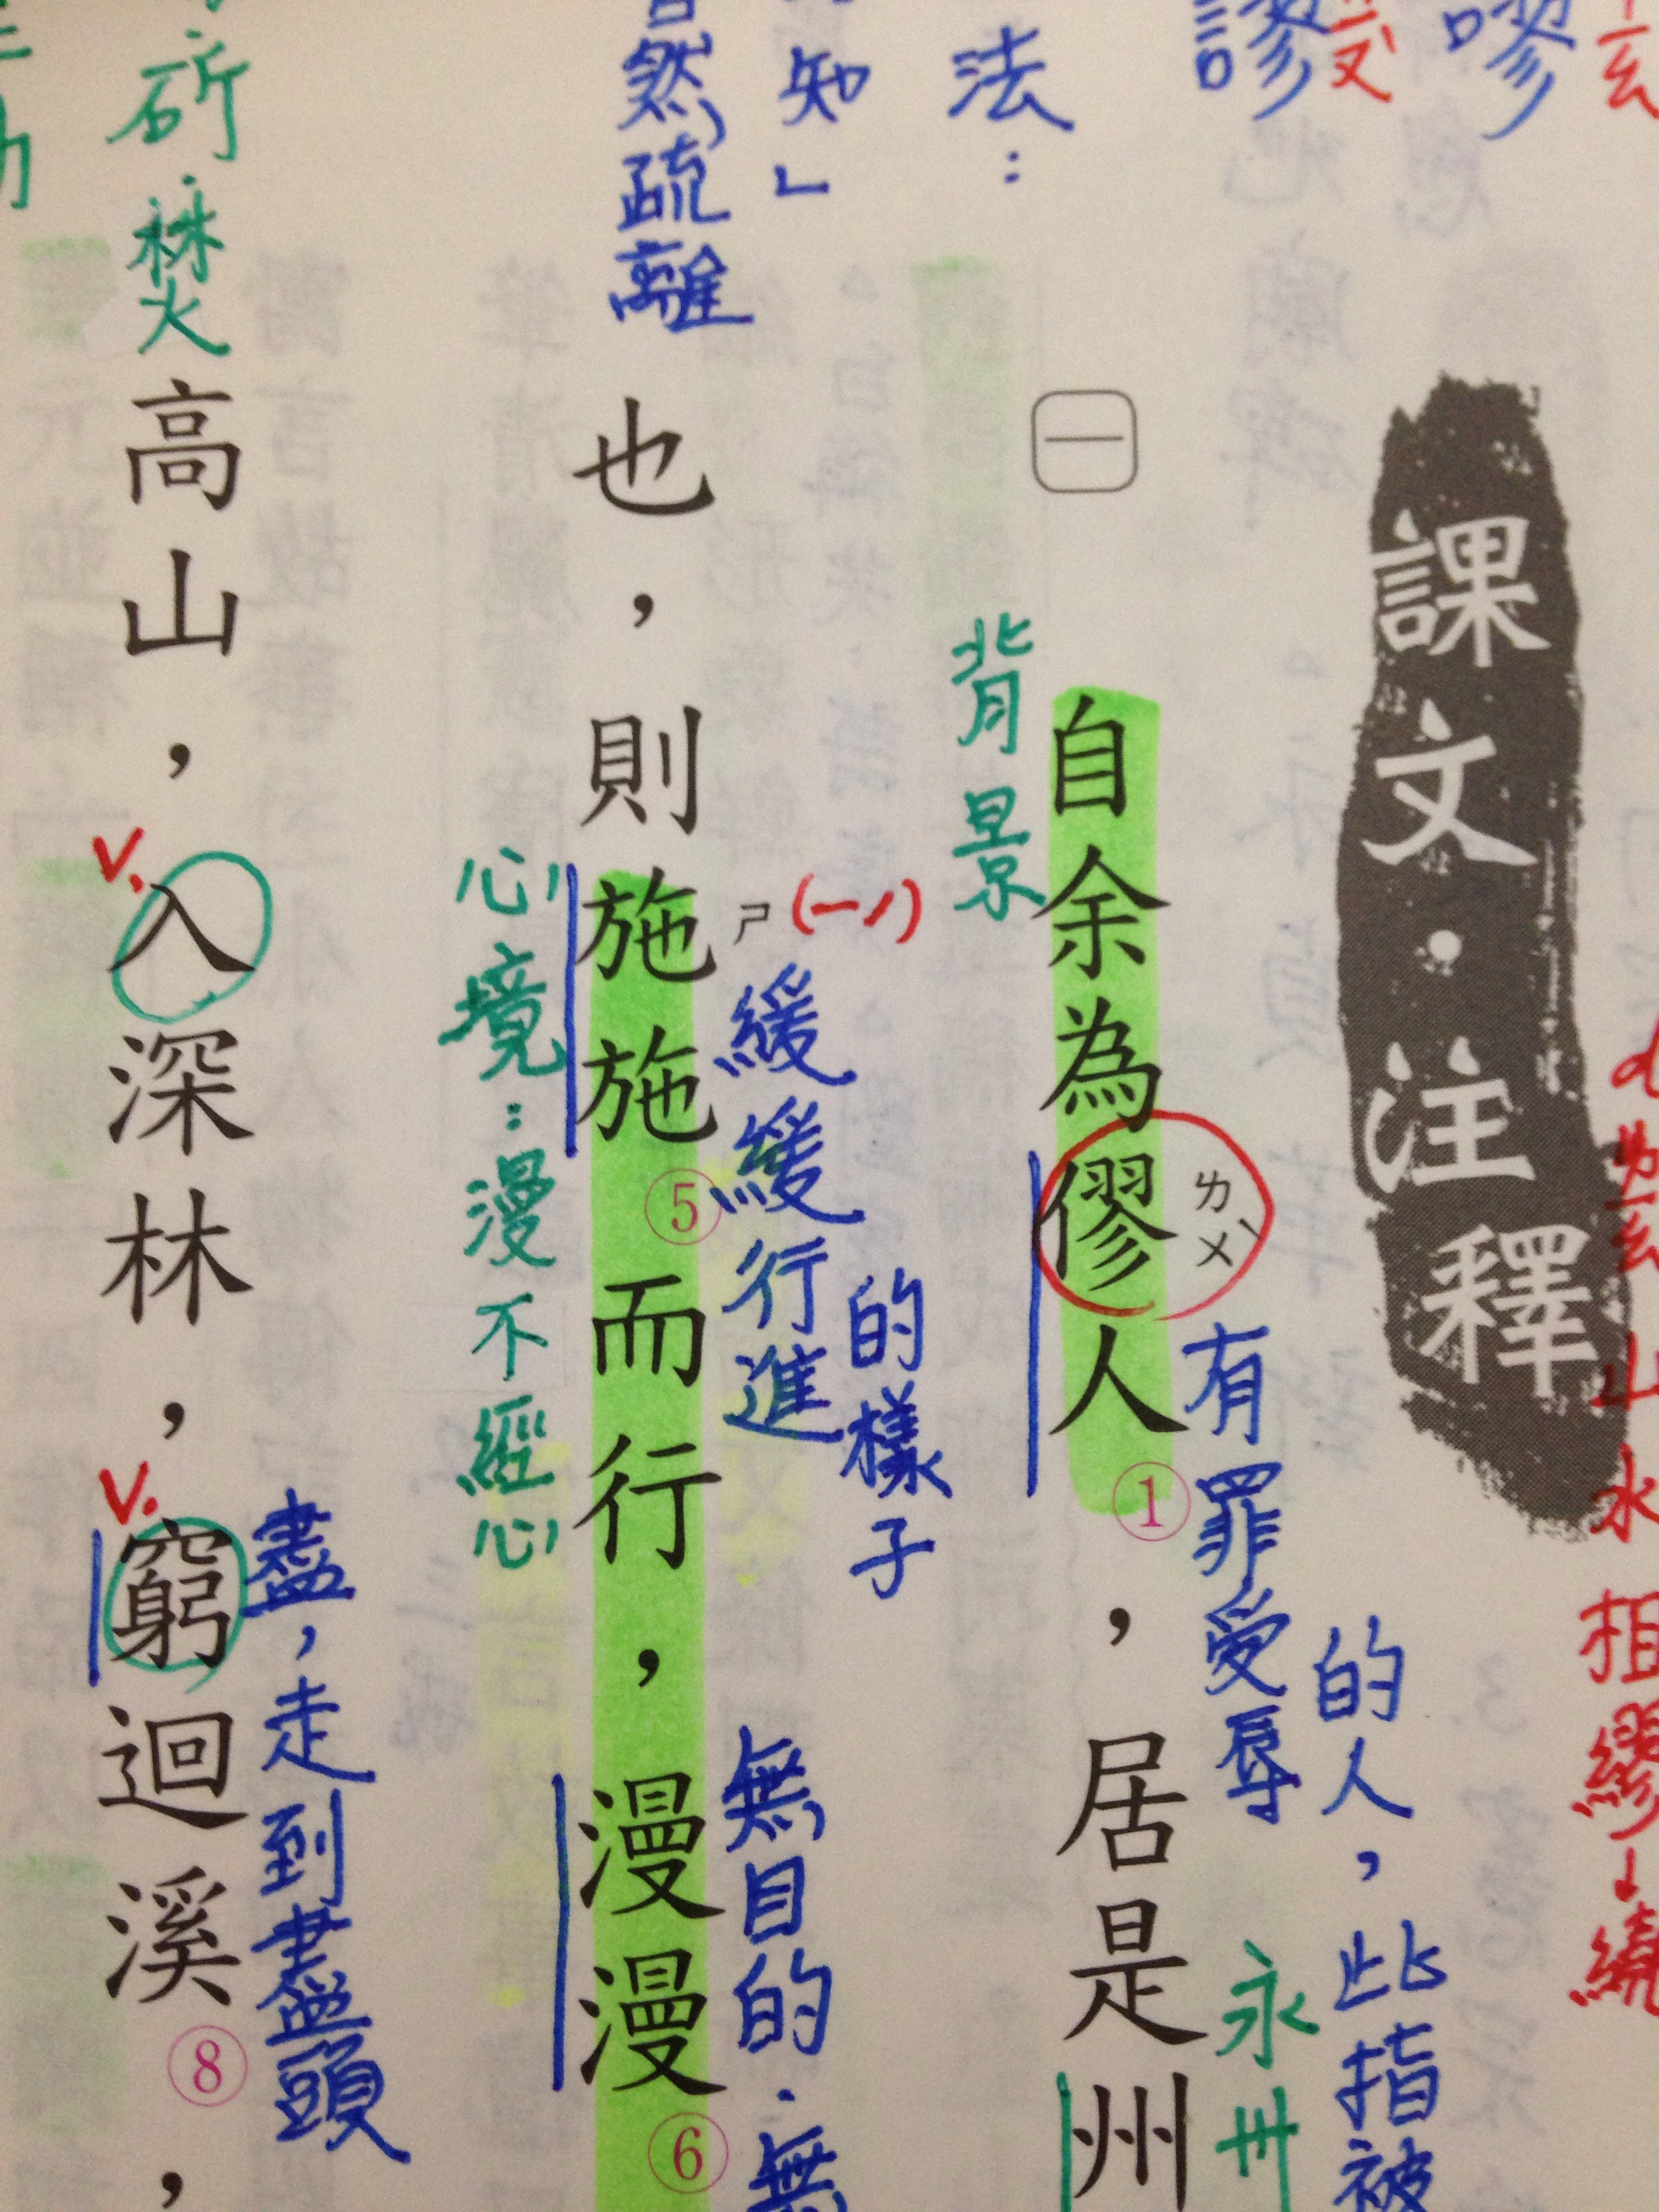 課文・注釋
山水相繆→繞
謬
法：
知」
然疏離
一
自余為僇人①，居是州
ㄌㄨˋ
有罪受辱
的人，此指被
永州
背景
也，則施施⑤而行，漫漫⑥
ㄕ（ㄧˊ）
緩緩行進
的樣子
無目的．無
心境：漫不經心
斫．焚
高山，入深林，窮迴溪⑧，
v.
v.
盡，走到盡頭